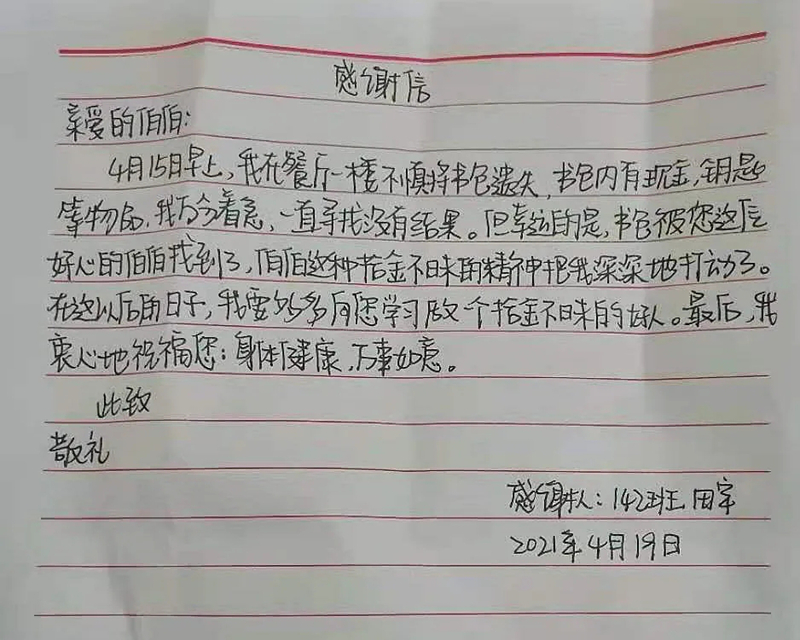 感谢信
亲爱的伯伯:
4月15日早上,我在餐厅一楼不慎将书包遗失,书包内有现金,钥匙
等物品,我万分着急,一直寻找没有结果。但幸运的是,书包被您这位
好心的伯伯找到了,伯伯这种拾金不昧的精神把我深深地打动了。
在这以后的日子,我要多多向您学习做一个拾金不昧的好人。最后,我
衷心地祝福您:身体健康,万事如意。
此致
敬礼
感谢人:142班 田宇
2021年4月19日